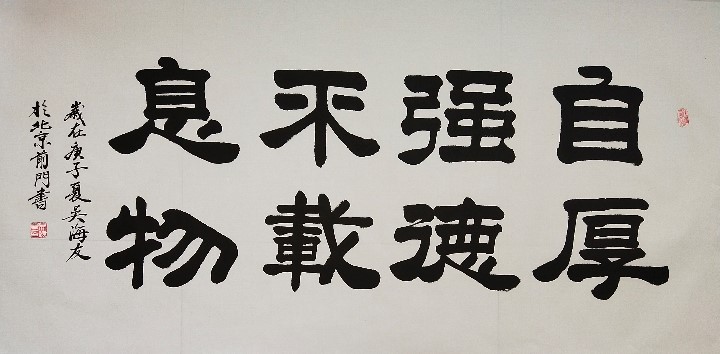 自强不息
厚德載物
歲在庚子夏吴海友
於北京前門書